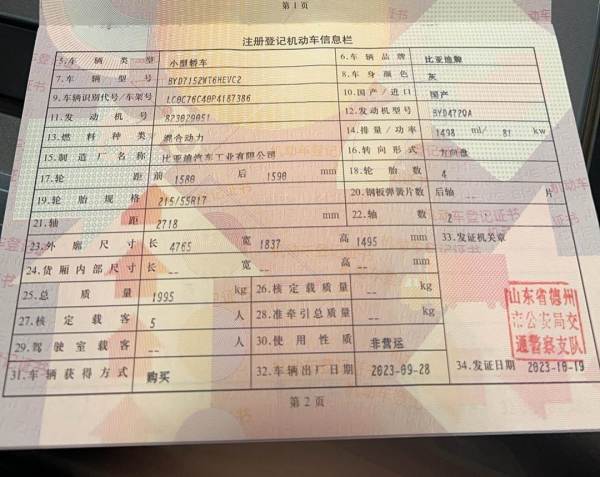 第1页
注册登记机动车信息栏
5.车辆类型 小型轿车 6.车辆品牌 比亚迪牌
7.车辆型号 BYD7152WT6HEVC2 8.车身颜色 灰
9.车辆识别代号/车架号 LC0C76C40P4187386 10.国产/进口 国产
11.发动机号 823029051 12.发动机型号 BYD472QA
13.燃料种类 混合动力 14.排量/功率 1498 ml/ 81 kw
15.制造厂名称 比亚迪汽车工业有限公司 16.转向形式 方向盘
17.轮距 前 1580 后 1590 mm 18.轮胎数 4
19.轮胎规格 215/55R17 20.钢板弹簧片数 后轴 -- 片
21.轴距 2718 mm 22.轴数 2
23.外廓尺寸 长 4765 宽 1837 高 1495 mm 33.发证机关章
24.货厢内部尺寸 长 -- 宽 -- 高 -- mm
25.总质量 1995 kg 26.核定载质量 -- kg
27.核定载客 5 人 28.准牵引总质量 -- kg
29.驾驶室载客 -- 人 30.使用性质 非营运
山东省德州
市公安局交
通警察支队
31.车辆获得方式 购买 32.车辆出厂日期 2023-09-28 34.发证日期 2023-10-19
第2页